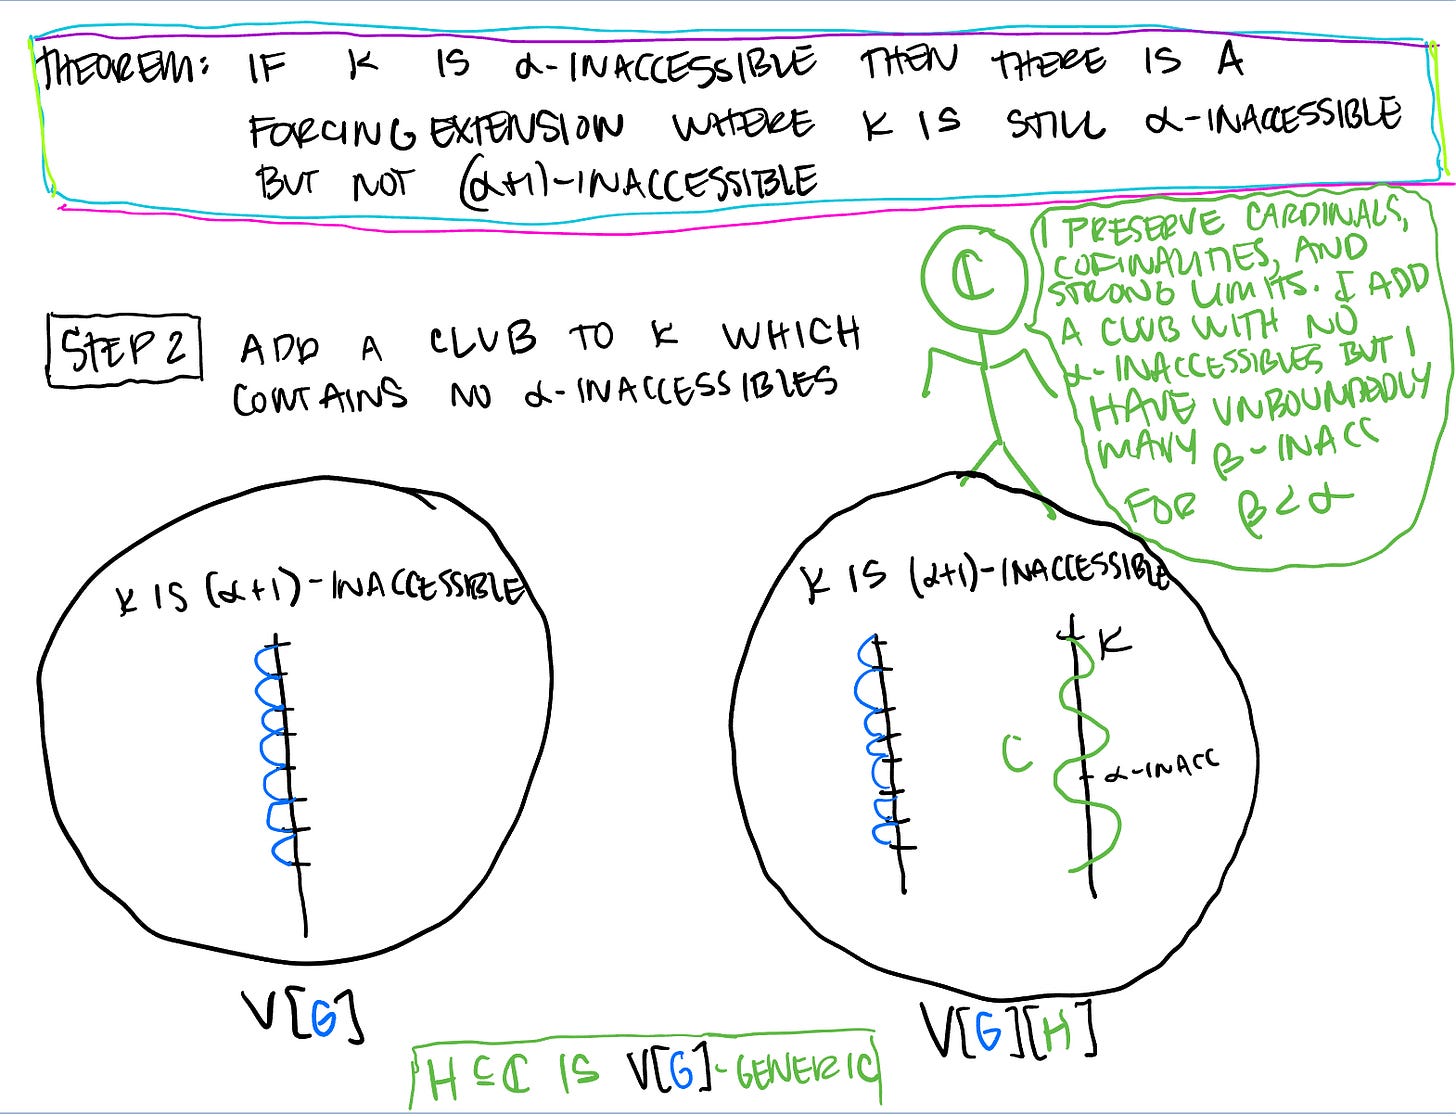 THEOREM: IF K IS α-INACCESSIBLE THEN THERE IS A
FORCING EXTENSION WHERE K IS STILL α-INACCESSIBLE
BUT NOT (α+1)-INACCESSIBLE
I PRESERVE CARDINALS,
COFINALITIES, AND
STRONG LIMITS. I ADD
A CLUB WITH NO
α-INACCESSIBLES BUT I
HAVE UNBOUNDEDLY
MANY β-INACC
FOR β<α
ℂ
STEP 2 ADD A CLUB TO K WHICH
CONTAINS NO α-INACCESSIBLES
K IS (α+1)-INACCESSIBLE
V[G]
K IS (α+1)-INACCESSIBLE
K
C
α-INACC
V[G][H]
H ⊆ ℂ IS V[G]-GENERIC